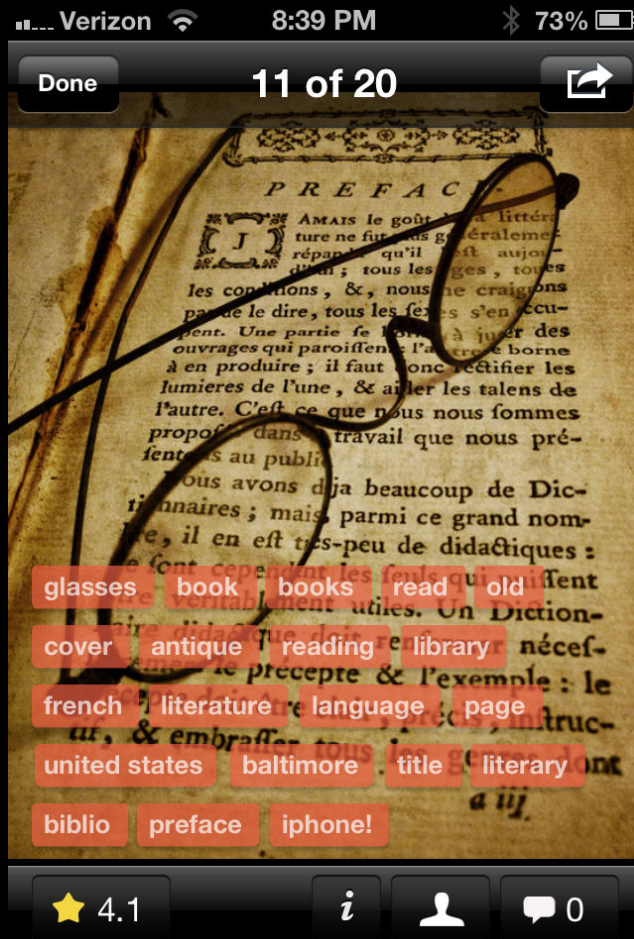 Verizon 8:39 PM 73%
Done 11 of 20
PREFAC
J
AMAIS le goût littéra
ture ne fut
répand qu'il est aujour-
d'hui ; tous les ges , toutes
les conditions , &, nous ne craignons
pas de le dire, tous les sexes s'en occu-
pent. Une partie se à juger des
ouvrages qui paroiſſent borne
à en produire ; il faut donc rectifier les
lumieres de l'une, & aider les talens de
l'autre. C'eſt ce que nous nous ſommes
propoſ dans travail que nous pré-
ſentons au public
ous avons deja beaucoup de Dic-
tionnaires ; mais, parmi ce grand nom-
bre, il en eſt très-peu de didactiques :
ſont cependant les ſeuls qui puiſſent
être véritablement utiles. Un Diction-
naire didactique doit renfermer néceſ-
le précepte & l'exemple : le
précepte doit être clair, précis, inſtruc-
tif, & embraſſer tous les genres dont
a iij
glasses book books read old
cover antique reading library
french literature language page
united states baltimore title literary
biblio preface iphone!
4.1 i 0